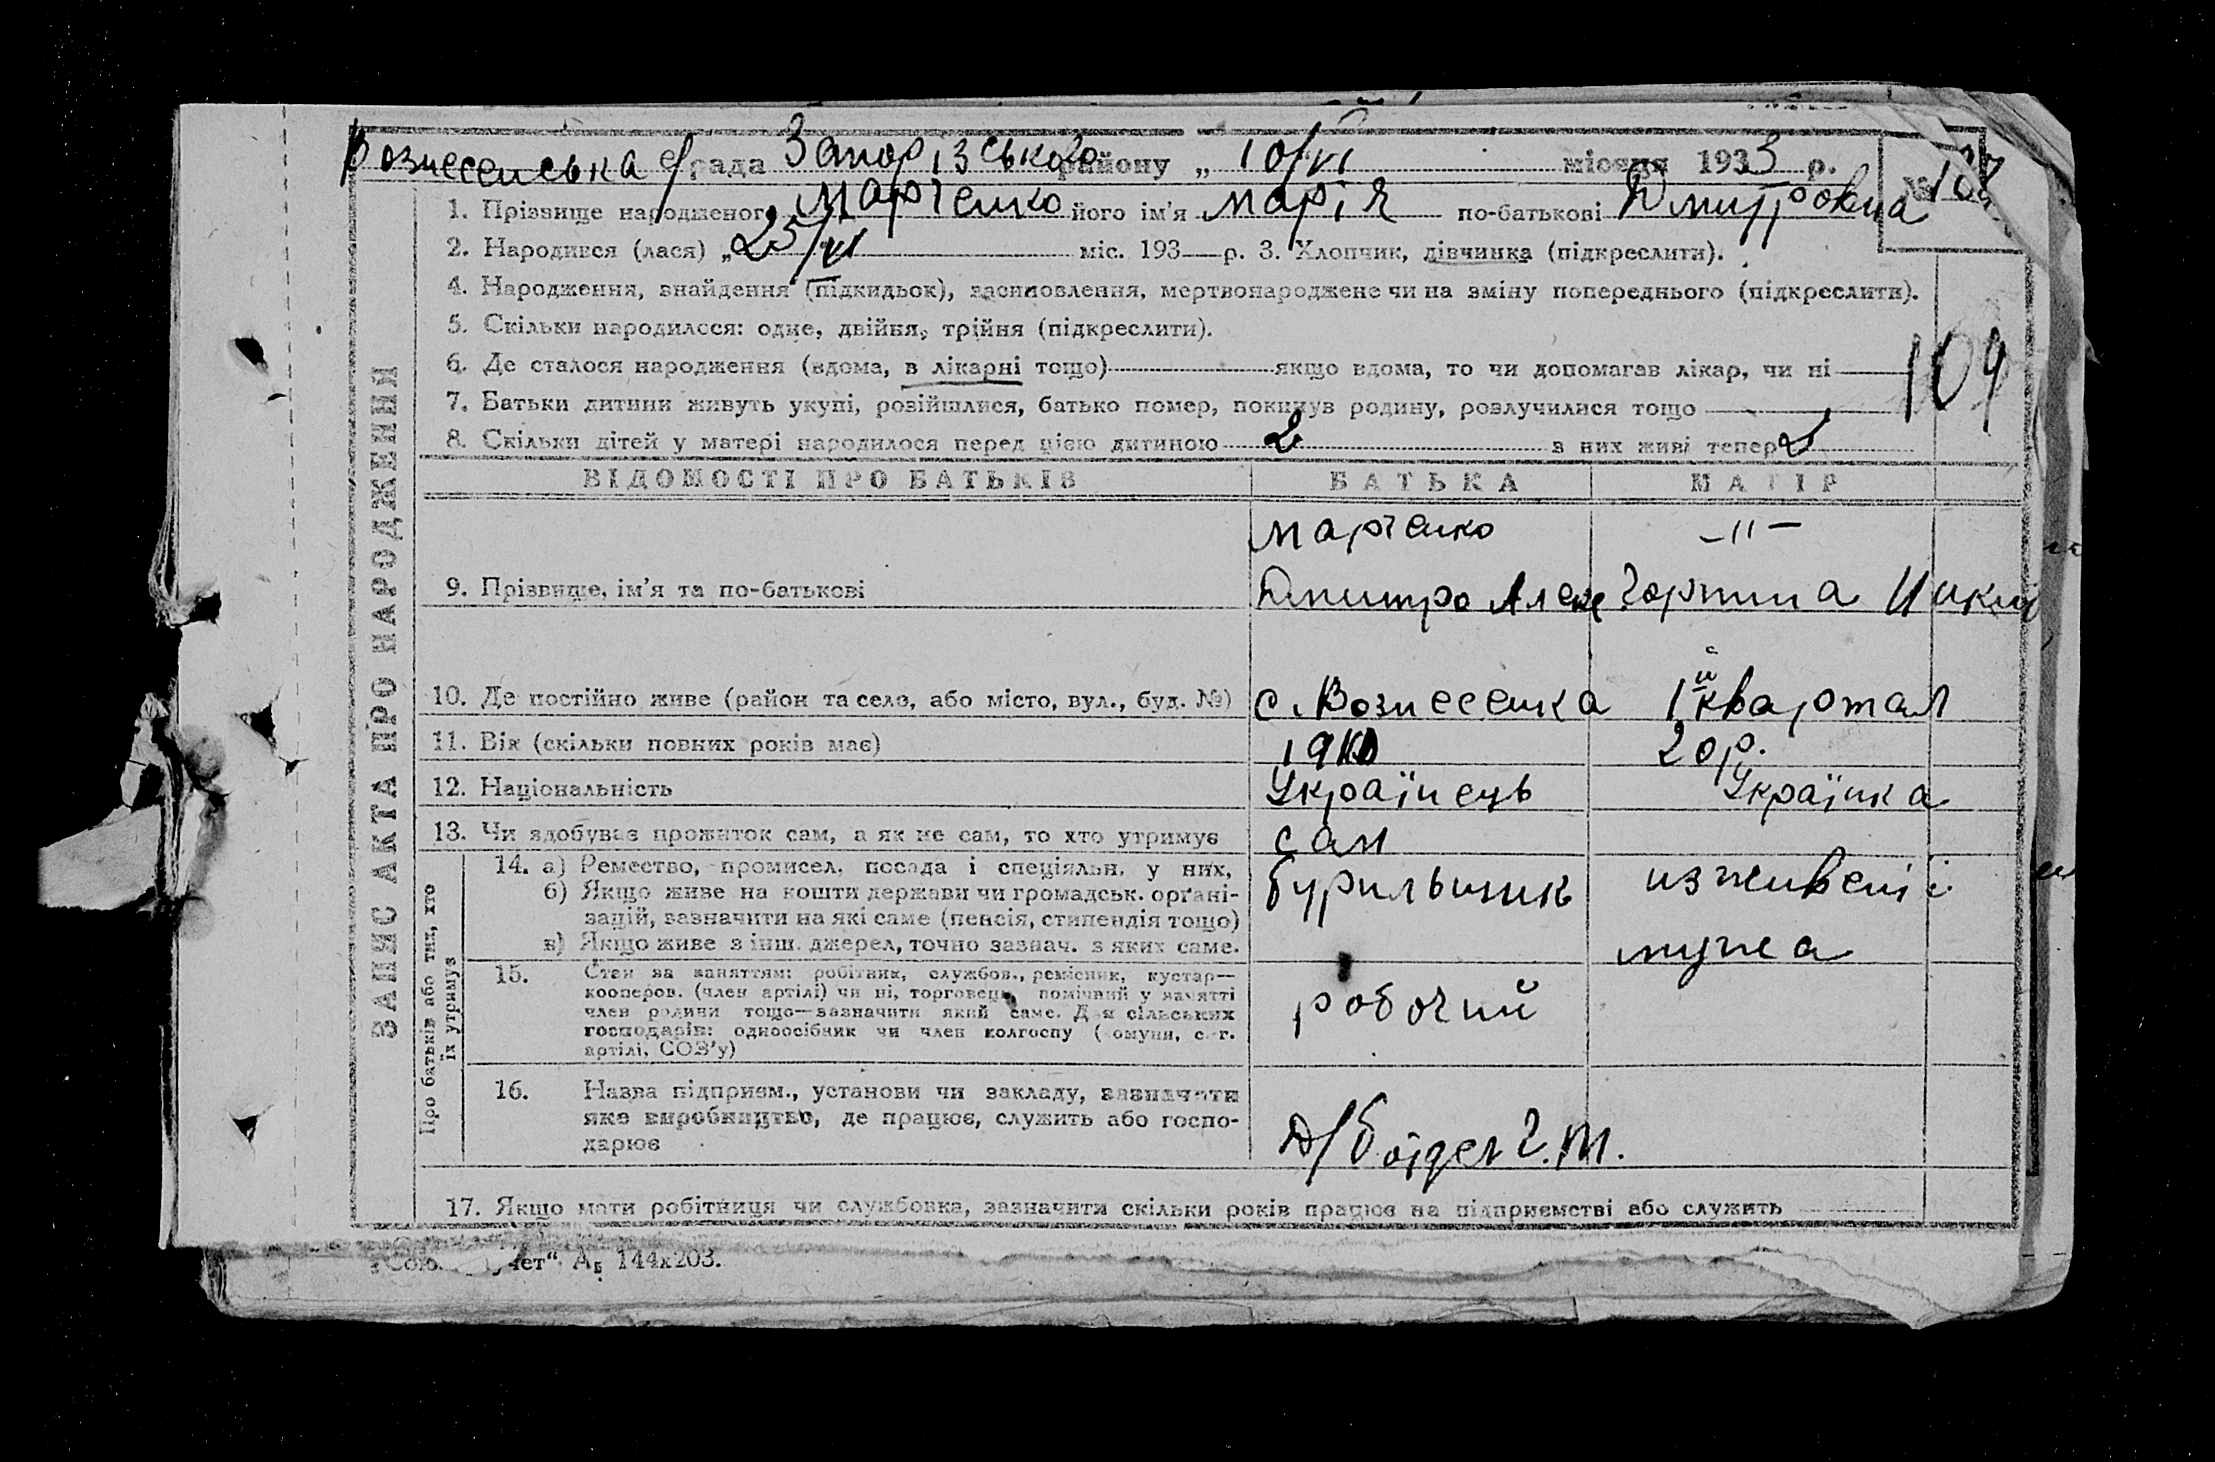 Вознесенська с/рада Запорізського району „ 10/VI місяця 1933 р.
№
1. Прізвище народженого Марченко його ім'я Марія по-батькові Дмитровна
2. Народився (лася) „ 25/VI міс. 193 р. 3. Хлопчик, дівчинка (підкреслити).
4. Народження, знайдення (підкидьок), засиновлення, мертвонароджене чи на зміну попереднього (підкреслити).
5. Скільки народилося: одне, двійня, трійня (підкреслити).
6. Де сталося народження (вдома, в лікарні тощо) якщо вдома, то чи допомагав лікар, чи ні
109
7. Батьки дитини живуть укупі, розійшлися, батько помер, покинув родину, розлучилися тощо
8. Скільки дітей у матері народилося перед цією дитиною 2 з них живі тепер 2
ЗАПИС АКТА ПРО НАРОДЖЕННЯ
ВІДОМОСТІ ПРО БАТЬКІВ БАТЬКА МАТІР
Марченко –II–
9. Прізвище, ім'я та по-батькові Дмитро Алекс
10. Де постійно живе (район та село, або місто, вул., буд. №) с. Вознесенка 1й квартал
11. Вік (скільки повних років має) 20 р.
12. Національність Українець Українка
13. Чи здобуває прожиток сам, а як не сам, то хто утримує сам
Про батьків або тих, хто їх утримує
14. а) Ремество, промисел, посада і спеціяльн. у них, бурильщик изживенії
б) Якщо живе на кошти держави чи громадськ. орґані-
зацій, зазначити на які саме (пенсія, стипендія тощо)
в) Якщо живе з інш. джерел, точно зазнач. з яких саме. мужа
15. Стан за заняттям: робітник, службов., ремісник, кустар—
кооперов. (член артілі) чи ні, торговець, помічний у занятті
член родини тощо—зазначити який саме. Для сільських робочий
господарів: одноосібник чи член колгоспу (комуни, с.-г.
артілі, СОЗ'у)
16. Назва підприєм., установи чи закладу, зазначити
яке виробництво, де працює, служить або госпо-
дарює
17. Якщо мати робітниця чи службовка, зазначити скільки років працює на підприємстві або служить
144х203.